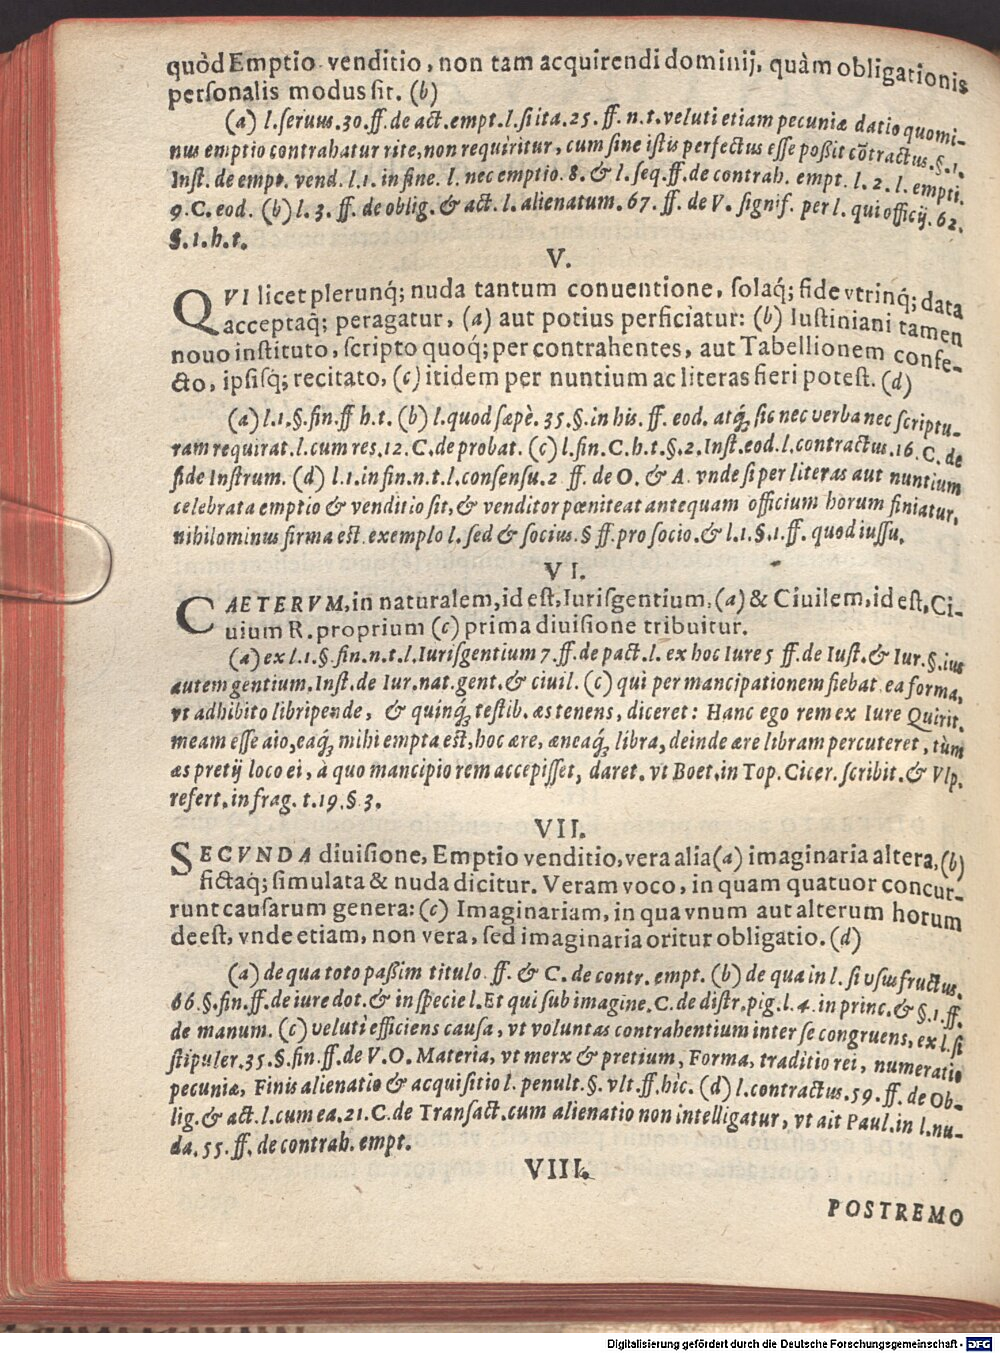 quòd Emptio venditio, non tam acquirendi dominij, quàm obligationis
personalis modus sit. (b)
(a) l. seruus. 30. ff. de act. empt. l. si ita. 25. ff. n. t. veluti etiam pecuniæ datio quomi-
nus emptio contrahatur rite, non requiritur, cum sine istis perfectus esse poßit cõtractus. §. 1.
Inst. de empt. vend. l. 1. in fine. l. nec emptio. 8. & l. seq. ff. de contrah. empt. l. 2. l. empti.
9. C. eod. (b) l. 3. ff. de oblig. & act. l. alienatum. 67. ff. de V. signif. per l. qui officij. 62.
§. 1. h. t.
V.
QVI licet plerunq; nuda tantum conuentione, solaq́; fide vtrinq́; data
acceptaq́; peragatur, (a) aut potius perficiatur: (b) Iustiniani tamen
nouo instituto, scripto quoq́; per contrahentes, aut Tabellionem confe-
cto, ipsisq́; recitato, (c) itidem per nuntium ac literas fieri potest. (d)
(a) l. 1. §. fin. ff h. t. (b) l. quod sæpè. 35. §. in his. ff. eod. atq́; sic nec verba nec scriptu-
ram requirat. l. cum res. 12. C. de probat. (c) l. fin. C. h. t. §. 2. Inst. eod. l. contractus. 16. C. de
fide Instrum. (d) l. 1. in fin. n. t. l. consensu. 2 ff. de O. & A. vnde si per literas aut nuntium
celebrata emptio & venditio sit, & venditor pœniteat antequam officium horum finiatur,
nihilominus firma est. exemplo l. sed & socius. § ff. pro socio. & l. 1. §. 1. ff. quod iussu.
VI.
CAETERVM, in naturalem, id est, Iurisgentium, (a) & Ciuilem, id est, Ci-
uium R. proprium (c) prima diuisione tribuitur.
(a) ex l. 1. §. fin. n. t. l. Iurisgentium 7. ff. de pact. l. ex hoc Iure 5 ff. de Iust. & Iur. §. ius
autem gentium. Inst. de Iur. nat. gent. & ciuil. (c) qui per mancipationem fiebat ea forma,
vt adhibito libripende, & quinq́; testib. æs tenens, diceret: Hanc ego rem ex Iure Quirit.
meam esse aio, eaq́; mihi empta est, hoc ære, æneaq́; libra, deinde ære libram percuteret, tùm
æs pretij loco ei, à quo mancipio rem accepisset, daret. vt Boet. in Top. Cicer. scribit. & Vlp.
refert. in frag. t. 19. § 3.
VII.
SECVNDA diuisione, Emptio venditio, vera alia (a) imaginaria altera, (b)
fictaq; simulata & nuda dicitur. Veram voco, in quam quatuor concur-
runt causarum genera: (c) Imaginariam, in qua vnum aut alterum horum
deest, vnde etiam, non vera, sed imaginaria oritur obligatio. (d)
(a) de qua toto paßim titulo ff. & C. de contr. empt. (b) de qua in l. si vsusfructus.
66. §. fin. ff. de iure dot. & in specie l. Et qui sub imagine. C. de distr. pig. l. 4. in princ. & §. 1. ff.
de manum. (c) veluti efficiens causa, vt voluntas contrahentium inter se congruens, ex l. si
stipuler. 35. §. fin. ff. de V. O. Materia, vt merx & pretium, Forma, traditio rei, numeratio
pecuniæ, Finis alienatio & acquisitio l. penult. §. vlt. ff. hic. (d) l. contractus. 59. ff. de Ob-
lig. & act. l. cum ea. 21. C. de Transact. cum alienatio non intelligatur, vt ait Paul. in l. nu-
da. 55. ff. de contrah. empt.
VIII.
POSTREMO
Digitalisierung gefördert durch die Deutsche Forschungsgemeinschaft - DFG